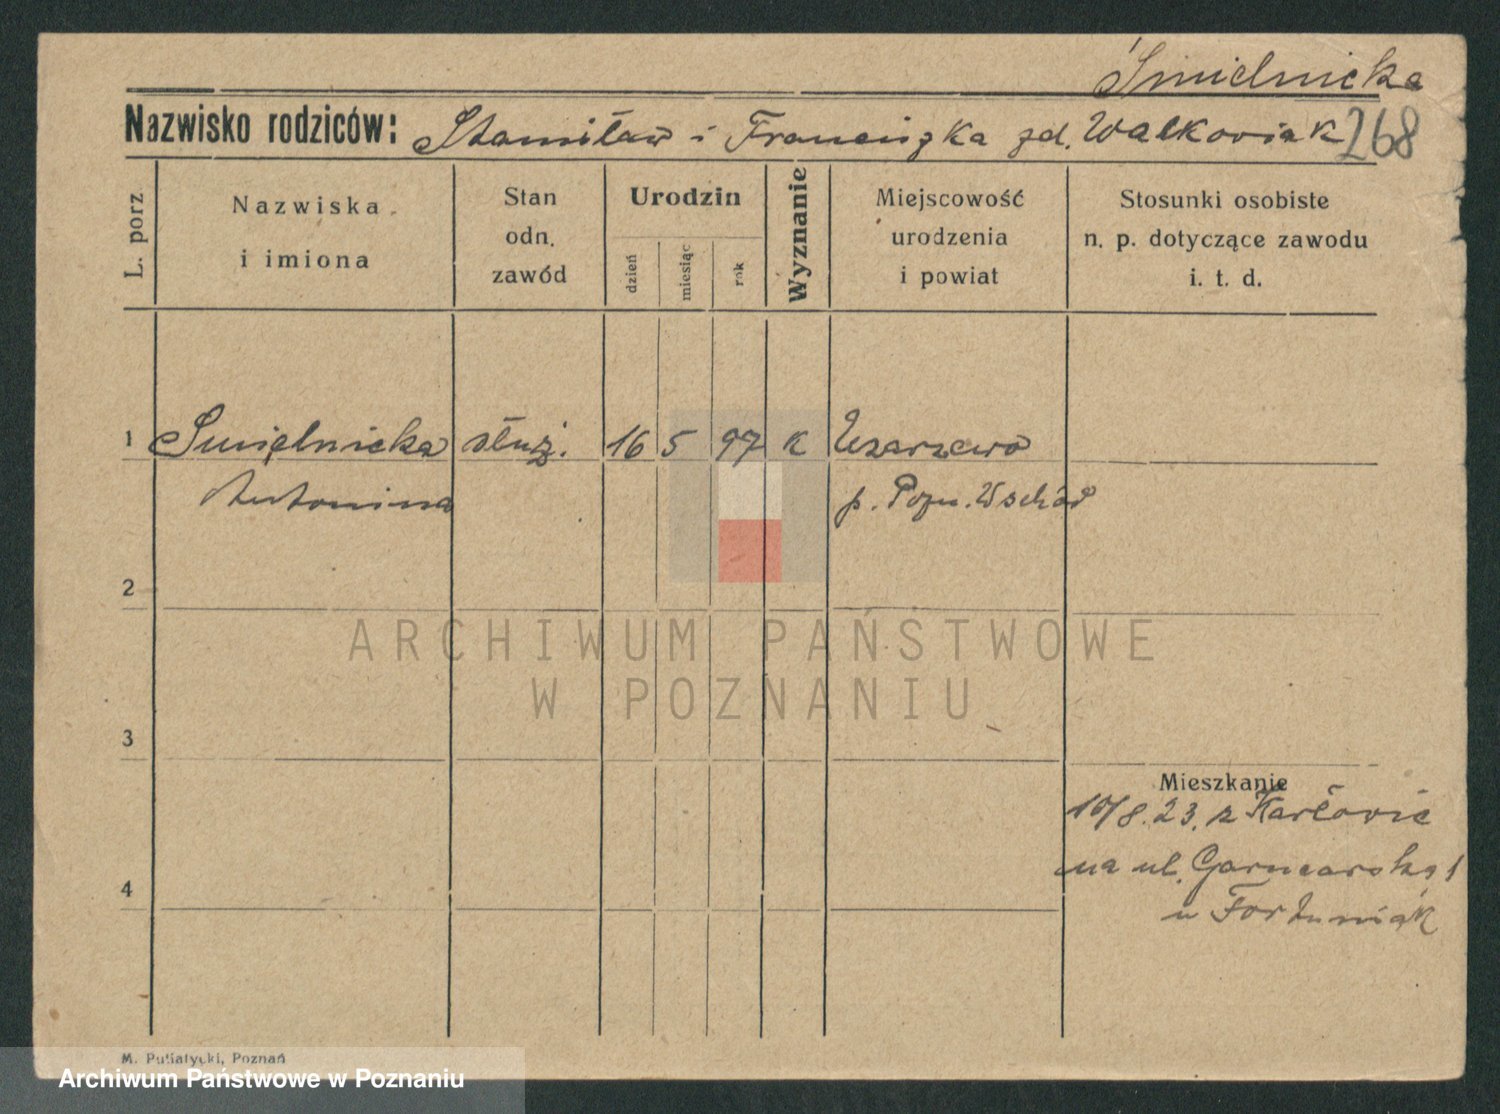 Śmielnicka
Nazwisko rodziców: Stanisław i Franciszka zd. Walkowiak 268
L. porz
Nazwiska
i imiona
Stan
odn.
zawód
Urodzin
dzień
miesiąc
rok
Wyznanie
Miejscowość
urodzenia
i powiat
Stosunki osobiste
n. p. dotyczące zawodu
i. t. d.
1 Śmielnicka służ. 16 5 97 k Uzarzewo
Antonina p. Pozn. Wschód
2
ARCHIWUM PAŃSTWOWE
W POZNANIU
3
Mieszkanie
10/8.23. z Karłowic
na ul. Garncarską 1
4
u Fortuniak
M. Putiatycki, Poznań
Archiwum Państwowe w Poznaniu